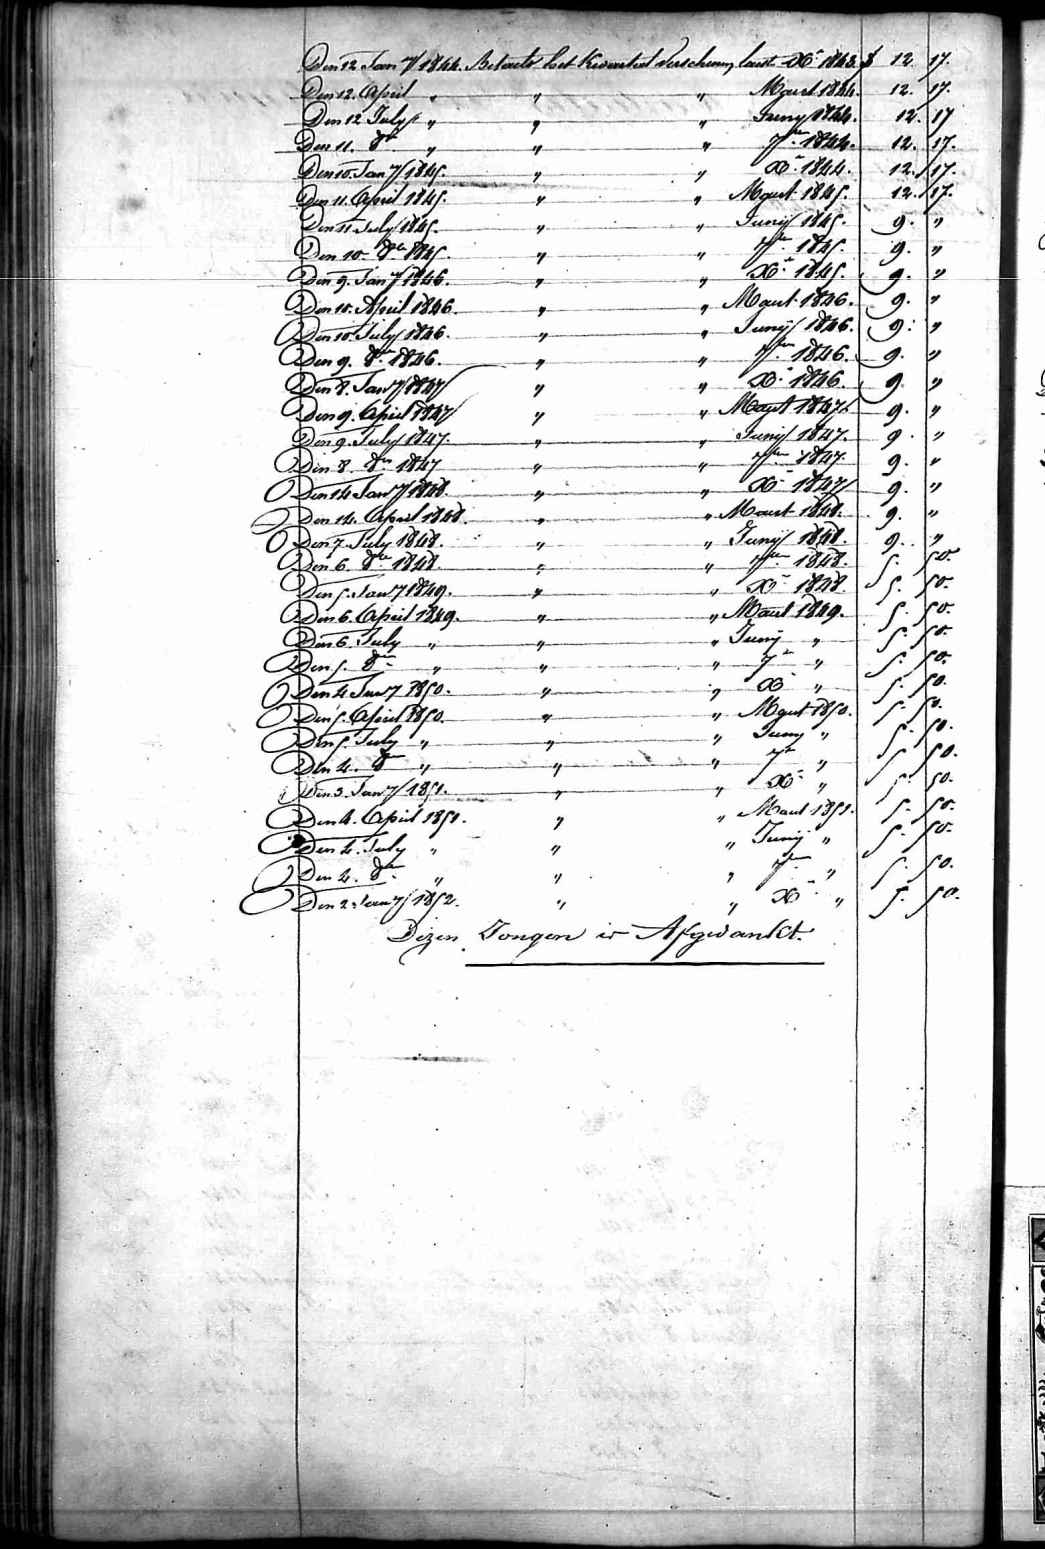 Den 12 Jany 1844. Betaald het Kwartaal Verschenen laast Xr 1843. f 12. 17.
Den 12. April " " " Maart 1844. 12. 17.
Den 12 July " " " Juny 1844. 12. 17
Den 11. 8br " " " 7br 1844. 12. 17.
Den 10. Jany 1845. " " Xr 1844. 12. 17.
Den 11. April 1845. " " Maart 1845. 12. 17.
Den 11 July 1845. " " Junij 1845. 9. "
Den 10 8br 1845. " " 7br 1845. 9. "
Den 9. Jany 1846. " " Xr 1845. 9. "
Den 10. April 1846. " " Maart 1846. 9. "
Den 10. July 1846. " " Junij 1846. 9. "
Den 9. 8br 1846. " " 7br 1846. 9. "
Den 8. Jany 1847 " " Xr 1846. 9. "
Den 9. April 1847 " " Maart 1847. 9. "
Den 9. July 1847. " " Junij 1847. 9. "
Den 8. 8br 1847 " " 7br 1847. 9. "
Den 14 Jany 1848. " " Xr 1847 9. "
Den 14. April 1848. " " Maart 1848. 9. "
Den 7. July 1848. " " Junij 1848. 9. "
Den 6. 8br 1848. " " 7br 1848. 5. 50.
Den 5. Jany 1849. " " Xr 1848. 5. 50.
Den 6. April 1849. " " Maart 1849. 5. 50.
Den 6. July " " " Junij " 5. 50.
Den 5. 8br " " " 7br " 5. 50.
Den 4 Jany 1850. " " Xr " 5. 50.
Den 5. April 1850. " " Maart 1850. 5. 50.
Den 5. July " " " Juny " 5. 50.
Den 4. 8br " " " 7br " 5. 50.
Den 3. Jany 1851. " " Xr " 5. 50.
Den 4. April 1851. " " Maart 1851. 5. 50.
Den 4. July " " " Junij " 5. 50.
Den 4. 8br " " " 7br " 5. 50.
Den 2 Jany 1852. " " Xr " 5. 50.
Dezen Jongen is Afgedankt.